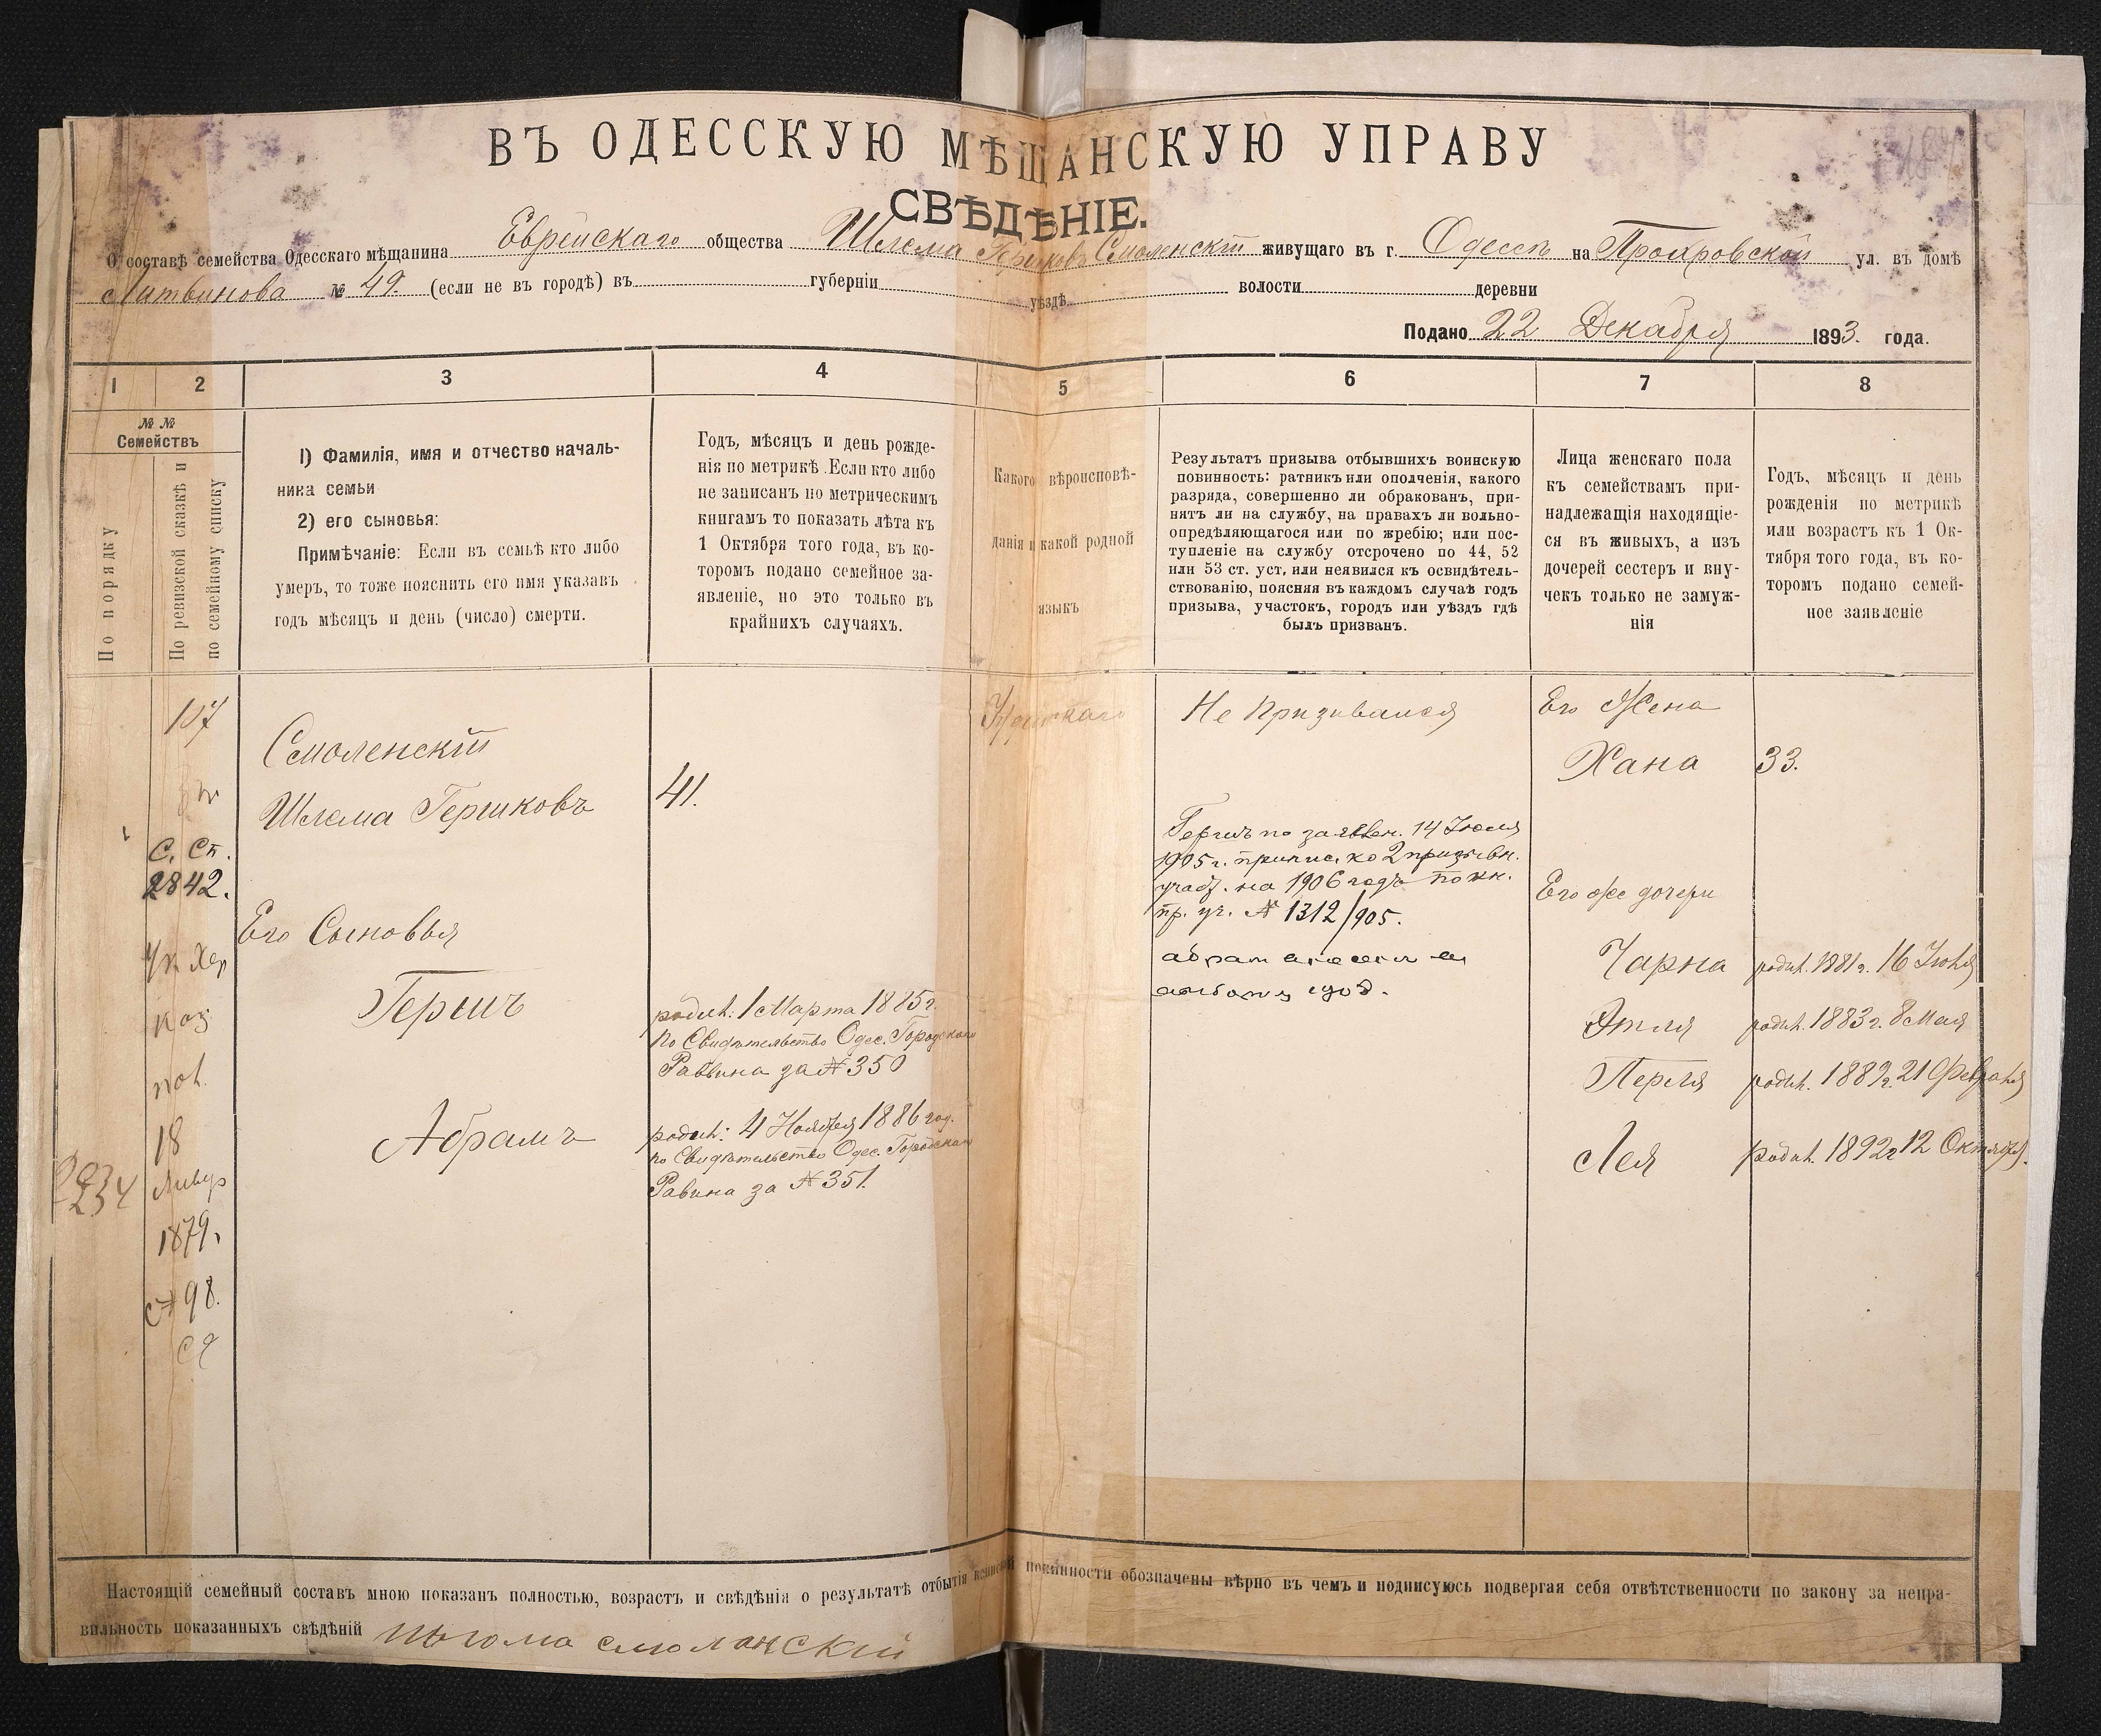 ВЪ ОДЕССКУЮ МѢЩАНСКУЮ УПРАВУ
СВѢДѢНІЕ.
О составѣ семейства Одесскаго мѣщанина Еврейскаго общества Шлема Гершковъ Смоленскій живущаго въ г. Одессѣ на ул. въ домѣ
Литвинова № 49. (если не въ городѣ) въ губерніи уѣздѣ волости деревни
Подано 22 Декабря 1893. года.
1 2 3 4 5 6 7 8
№ №
Семействъ
По порядку
По ревизской сказкѣ и
по семейному списку
1) Фамилія, имя и отчество началь-
ника семьи
2) его сыновья:
Примѣчаніе: Если въ семьѣ кто либо
умеръ, то тоже пояснить его имя указавъ
годъ мѣсяцъ и день (число) смерти.
Годъ, мѣсяцъ и день рожде-
нія по метрикѣ. Если кто либо
не записанъ по метрическимъ
книгамъ то показать лѣта къ
1 Октября того года, въ ко-
торомъ подано семейное за-
явленіе, но это только въ
крайнихъ случаяхъ.
Какого вѣроисповѣ-
данія и какой родной
языкъ
Результатъ призыва отбывшихъ воинскую
повинность: ратникъ или ополченія, какого
разряда, совершенно ли обракованъ, при-
нятъ ли на службу, на правахъ ли вольно-
опредѣляющагося или по жребію; или пос-
тупленіе на службу отсрочено по 44, 52
или 53 ст. уст, или неявился къ освидѣтель-
ствованію, поясняя въ каждомъ случаѣ годъ
призыва, участокъ, городъ или уѣздъ гдѣ
былъ призванъ.
Лица женскаго пола
къ семействамъ при-
надлежащія находящіе-
ся въ живыхъ, а изъ
дочерей сестеръ и вну-
чекъ только не замуж-
нія
Годъ, мѣсяцъ и день
рожденія по метрикѣ
или возрастъ къ 1 Ок-
тября того года, въ ко-
торомъ подано семей-
ное заявленіе
107
С. Сп.
2842.
18
1879.
98.
Смоленскій
Шлема Гершковъ
41.
Его Сыновья
Гершъ
родил: 1 Марта 1885 г.
по Свидѣтельство Одес. Городскаго
Раввина за № 350
Абрамъ
родил: 4 Ноября 1886 год.
по Свидѣтельство Одес. Городскаго
Равина за № 351.
Іудейскаго
Не Призывался
Гершъ по заявлен. 14 Іюля
1905 г. припис. ко 2 призывн.
участ. на 1906 годъ по кн.
пр. уч. № 1312/905.
Его Жена
Хана 33.
Его же дочери
Чарна родил. 1881 г. 16 Іюня
Этля родил. 1883 г. 8 Мая
Перля родил. 1889 г. 21 Февраля
Лея родил. 1892 г 12 Октября.
Настоящій семейный составъ мною показанъ полностью, возрастъ и свѣдѣнія о результатѣ отбытія воинской повинности обозначены вѣрно въ чемъ и подписуюсь подвергая себя отвѣтственности по закону за непра-
вильность показанныхъ свѣдѣній